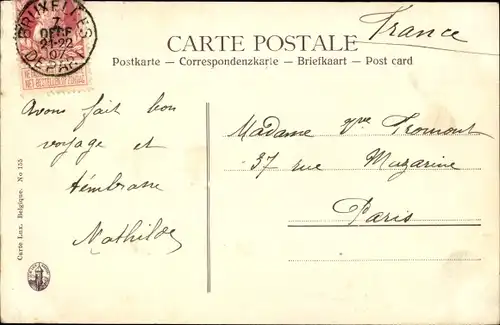 BRUXELLES
7
21-22
07
DEPART
France
CARTE POSTALE
Postkarte — Correspondenzkarte — Briefkaart — Post card
Avons fait bon
voyage et
Mathilde
Madame Vve Fromont
37 rue Mazarine
Paris
Carte Lux. Belgique. No 155